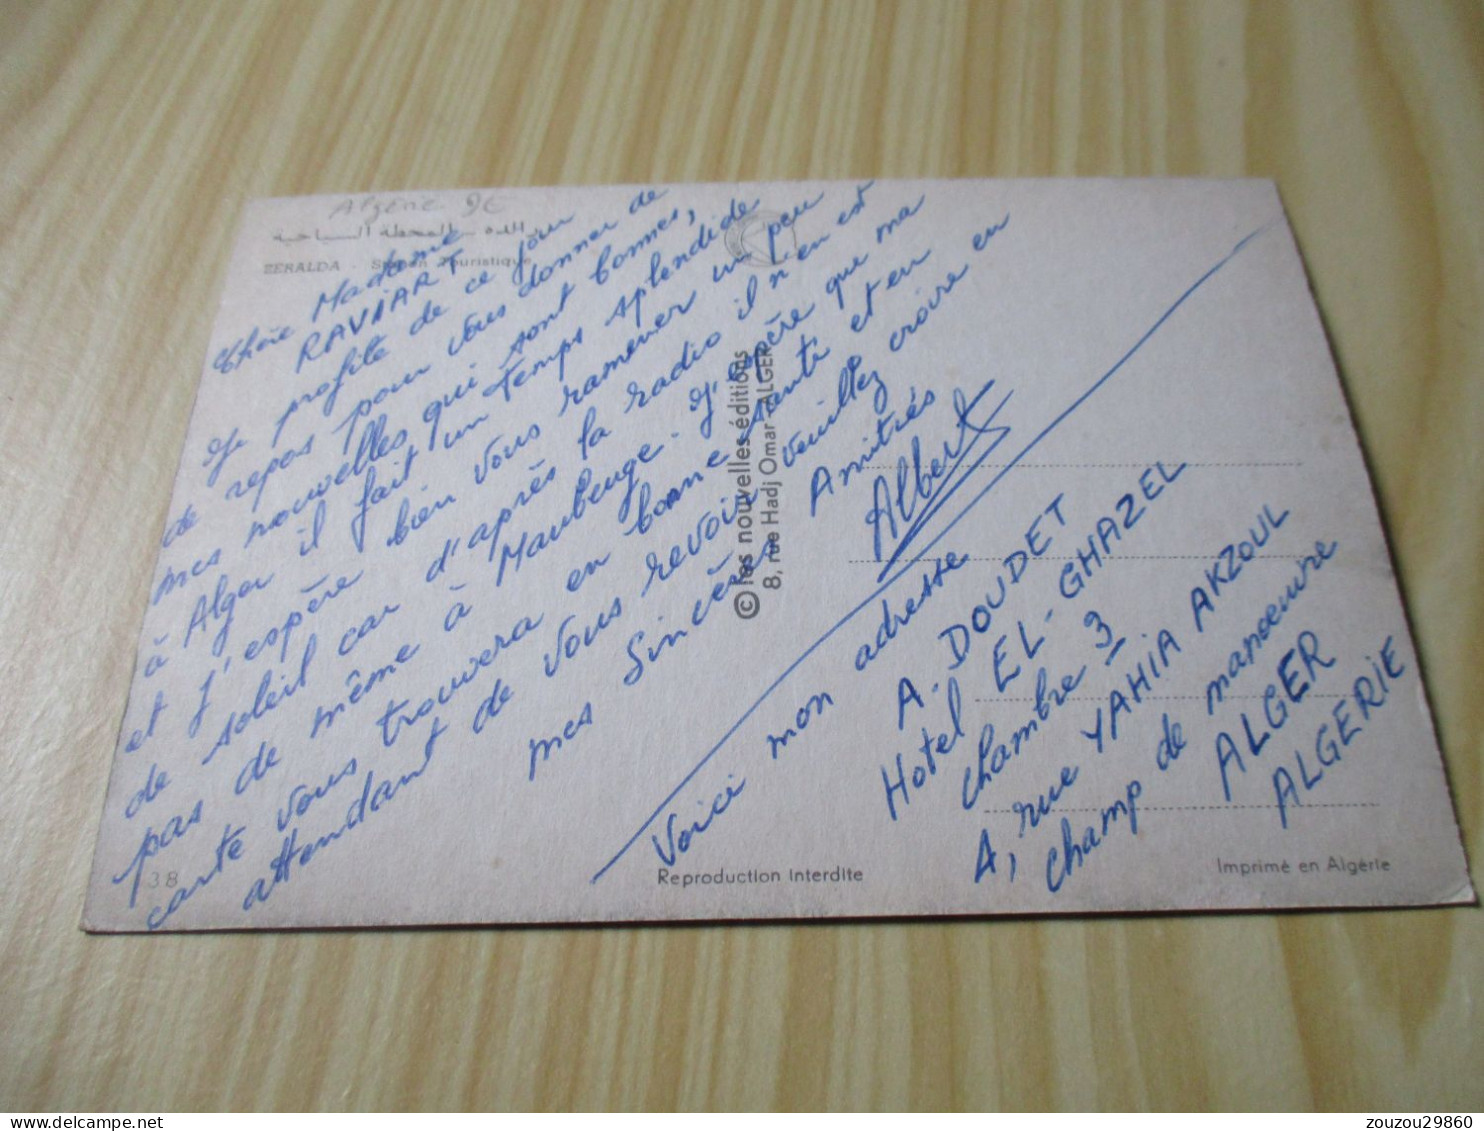 Algérie 9E
زرالدة - المحطة السياحية
ZERALDA - Station Touristique
Chère Madame
RAVIART
Je profite de ce jour
de repos pour vous donner de
mes nouvelles qui sont bonnes,
à Alger il fait un temps splendide
et J'espère bien vous ramener un peu
de soleil car d'après la radio il n'en est
pas de même à Maubeuge. J'espère que ma
carte vous trouvera en bonne santé et en
attendant de vous revoir veuillez croire en
mes Sincères Amitiés
Albert
© les nouvelles éditions
8, rue Hadj Omar - ALGER
Voici mon adresse
A. DOUDET
Hotel EL-GHAZEL
chambre 3
4, rue YAHIA AKZOUL
champ de manoeuvre
ALGER
ALGERIE
38
Reproduction Interdite
Imprimé en Algérie
zouzou29860
delcampe.net